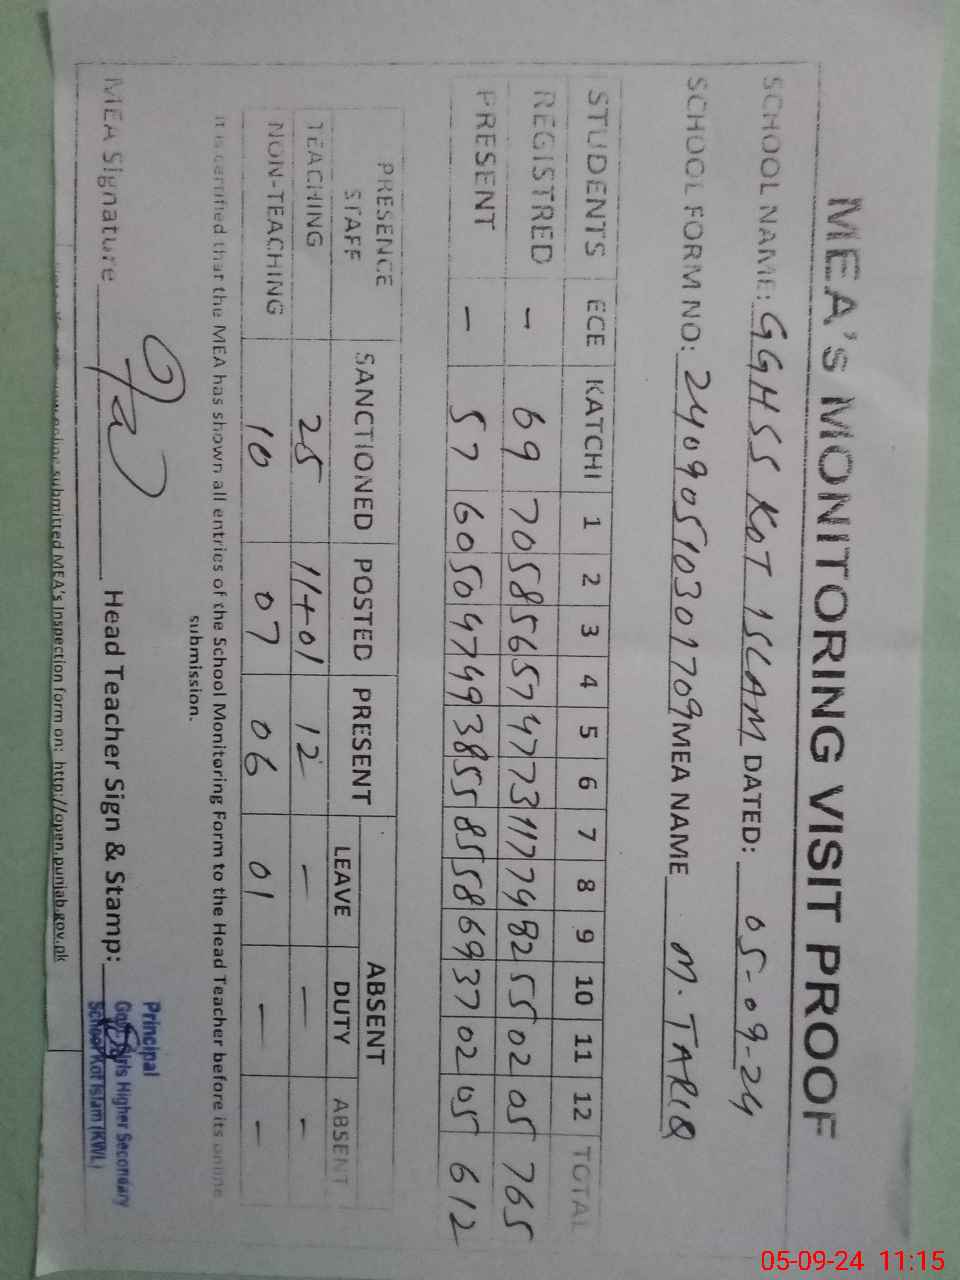 MEA's MONITORING VISIT PROOF
SCHOOL NAME: GGHSS KOT ISLAM DATED: 05-09-24
SCHOOL FORM NO: 24090510301709 MEA NAME M. TARIQ
STUDENTS ECE KATCHI 1 2 3 4 5 6 7 8 9 10 11 12 TOTAL
REGISTRED - 69 70 58 56 57 47 73 117 79 82 55 02 05 765
PRESENT - 57 60 50 47 49 38 55 85 58 69 37 02 05 612
PRESENCE STAFF SANCTIONED POSTED PRESENT ABSENT
LEAVE DUTY ABSENT
TEACHING 25 11+01 12 - - -
NON-TEACHING 10 07 06 01 - -
It is certified that the MEA has shown all entries of the School Monitoring Form to the Head Teacher before its online
submission.
MEA Signature Head Teacher Sign & Stamp:
Principal
Govt. Girls Higher Secondary
School Kot Islam (KWL)
submitted MEA's inspection form on: http://open.punjab.gov.pk
05-09-24 11:15